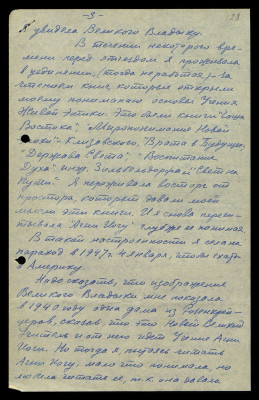 - 3 -
Я увидела Великого Владыку.
В течении некоторого вре-
мени перед отъездом я проживала
в уединении, (тогда не работая) - за
чтением книг, которые открыли
моему пониманию основы Учения
Живой Этики. Это были книги "Чаша
Востока", "Мировоззрение Новой
Эпохи" - Клизовского, "Врата в Будущее,
"Держава Света", "Воспитание
Духа" - и
Пути". Я переживала восторг от
простора, который давали моей
мысли эти книги. И я снова перечи-
тывала "Агни Йогу", глубже ее понимая
В такой настроенности я села на
пароход в 1947 г. 4 Января, чтобы ехать
в Америку.
Надо сказать, что изображение
Великого Владыки мне показала
в 1940 году одна дама из
сказав, что это Новый Великий
Учитель и от него идет Учение Агни
Йоги. Но тогда я, пытаясь читать
Агни Йогу, мало что понимала, но
любила читать ее, т.к. она давала